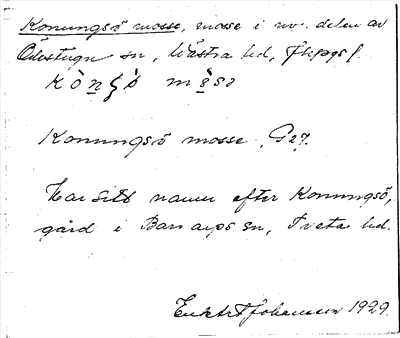 Konungsö mosse, mosse i nv. delen av
Ödestugu sn, Västra hd, Jkpgs l.
Konungsö mosse, G27.
Har sitt namn efter Konungsö,
gård i Barnarps sn, Tveta hd.
Johansson 1929.